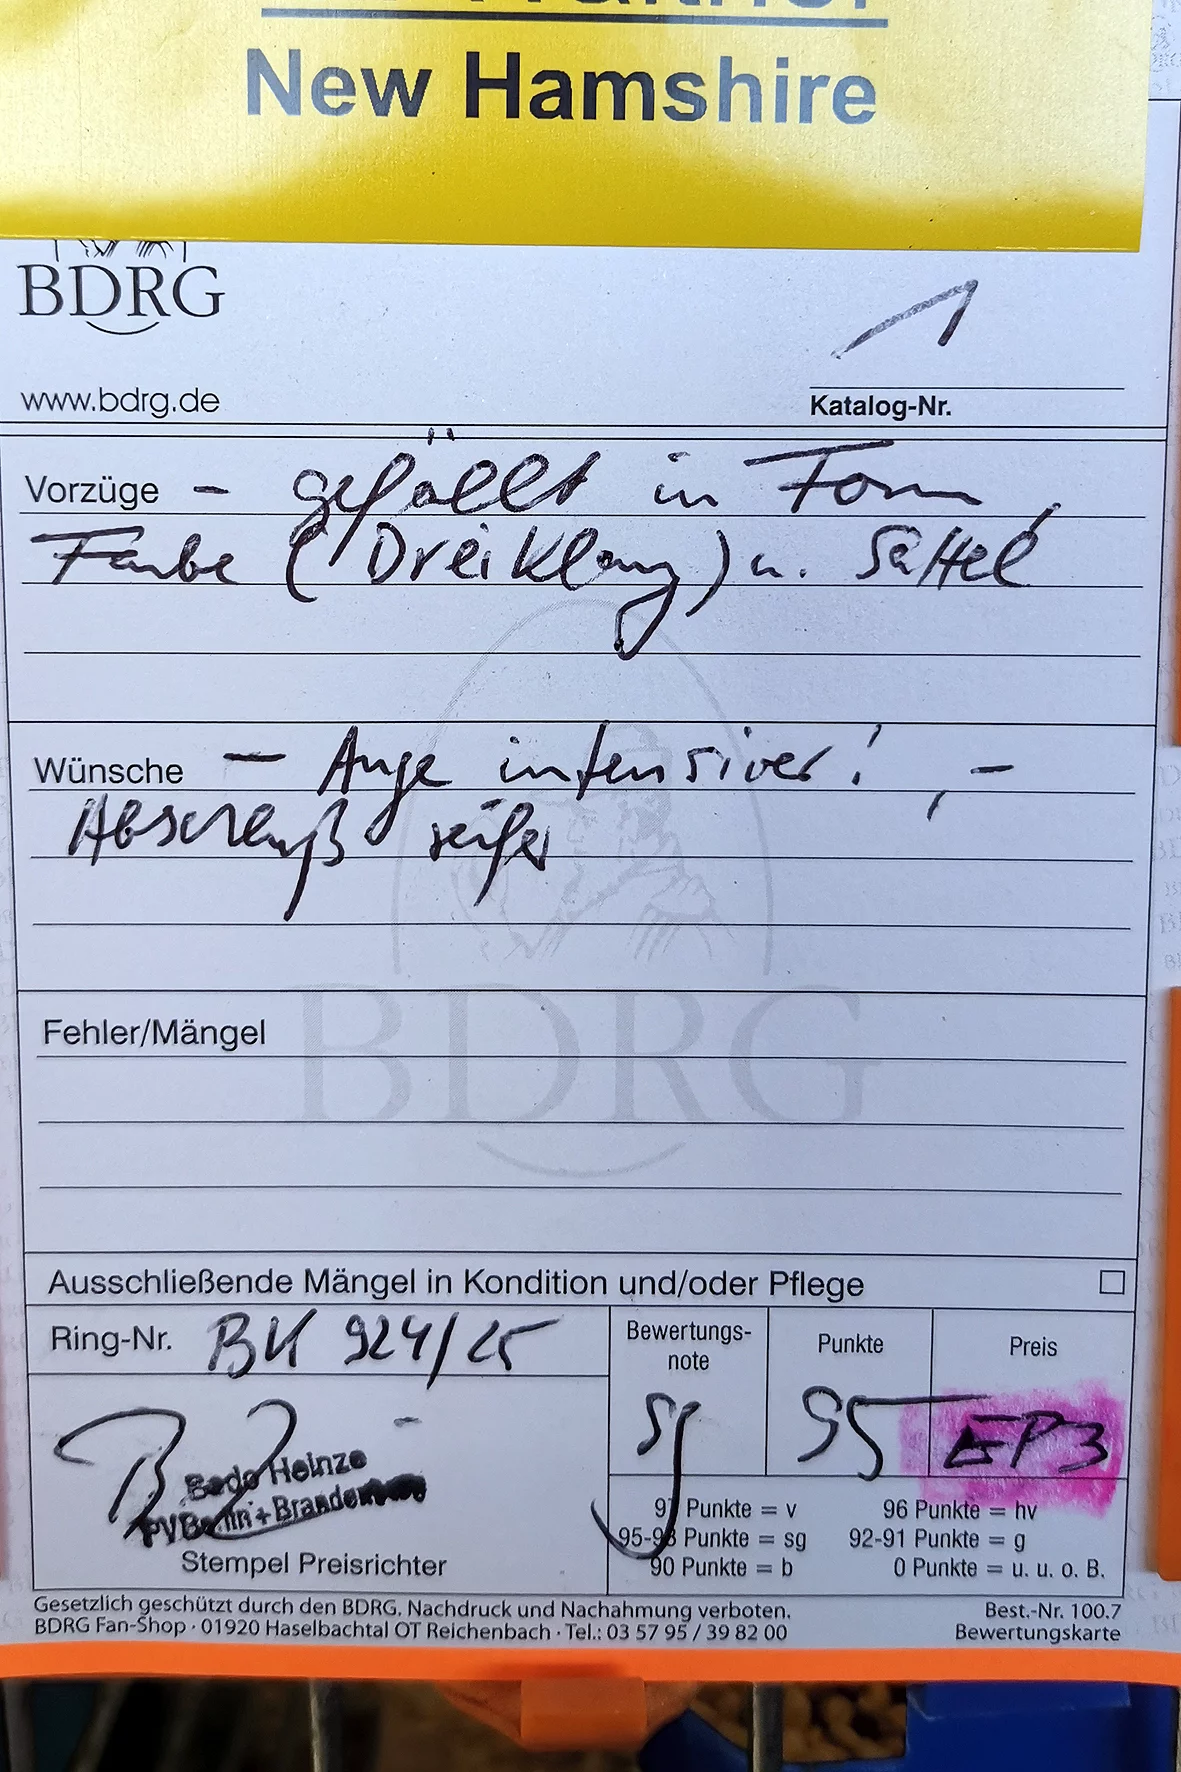 New Hamshire
BDRG
www.bdrg.de
1
Katalog-Nr.
Vorzüge - gefällt in Form,
Farbe (Dreiklang) u. Sattel
Wünsche - Auge intensiver! , -
Abschluß reifer
BDRG
Fehler/Mängel
Ausschließende Mängel in Kondition und/oder Pflege
Ring-Nr. BK 924/25
Bewertungs-
note
Punkte
Preis
sg 95 EP3
Bodo Heinze
PV Berlin + Brandenburg
Stempel Preisrichter
97 Punkte = v 96 Punkte = hv
95-93 Punkte = sg 92-91 Punkte = g
90 Punkte = b 0 Punkte = u. u. o. B.
Gesetzlich geschützt durch den BDRG. Nachdruck und Nachahmung verboten. Best.-Nr. 100.7
BDRG Fan-Shop · 01920 Haselbachtal OT Reichenbach · Tel.: 03 57 95 / 39 82 00 Bewertungskarte